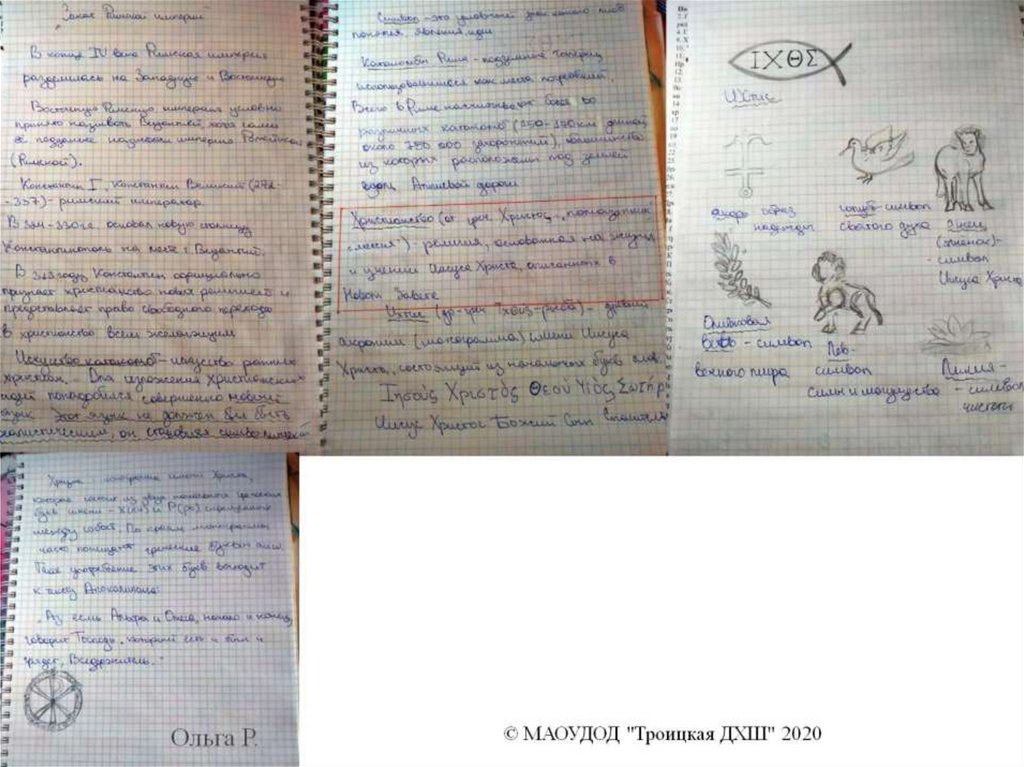 Закат Римской империи
В конце IV века Римская империя
разделилась на Западную и Восточную
Восточную Римскую империю условно
принято называть Византией, хотя сами
подданные называли империю Ромейской
(Римской).
Константин I, Константин Великий (272-
-337) - римский император.
В 324-330 г.г. основал новую столицу
Константинополь на месте г. Византий.
В 313 году Константин официально
признает христианство новой религией и
предоставляет право свободного перехода
в христианство всем желающим
Искусство катакомб - искусство ранних
христиан. - Для выражения христианских
идей понадобился совершенно новый
язык. Этот язык не должен был быть
реалистическим, он становился символическим
Символ - это условный знак какого-либо
понятия, явления, идеи
Катакомбы Рима - подземные галереи,
использовавшиеся как места погребений.
Всего в Риме насчитывают более 60
различных катакомб (150-170 км длиной,
около 750 000 захоронений), большинство
из которых расположены под землей
вдоль Аппиевой дороги
Христианство (от греч. Христос - "помазанник"
"мессия") религия, основанная на жизни
и учении Иисуса Христа, описанных в
Новом Завете
Ихтис (др-греч Ἰχθύς-рыба) - древний
акроним (монограмма) имени Иисуса
Христа, состоящий из начальных букв слов:
Ἰησοὺς Χριστὸς Θεοὺ Υἱὸς Σωτήρ
Иисус Христос Божий Сын Спаситель
ΙΧΘΣ
Ихтис
якорь образ
надежды
голубь-символ
святого духа
Агнец
(ягненок)-
- символ
Иисуса Христа
Оливковая
ветвь - символ
вечного мира
Лев-
символ
силы и могущества
Лилия-
- символ
чистоты
Хризма монограмма имени Христа,
которая состоит из двух начальных греческих
букв имени - Х(хи) и Р(ро) скрещенных
между собой. По краям монограммы
часто помещают греческие буквы
употребление этих букв восходит
к тексту Апокалипсиса:
"Аз есмь Альфа и Омега, начало и конец,
говорит Господь, который есть и был и
грядет, Вседержитель."
Ольга Р.
© МАОУДОД "Троицкая ДХШ" 2020